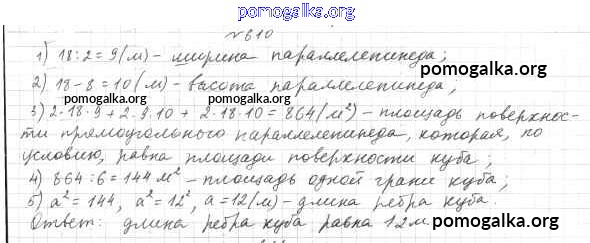 pomogalka.org
№610
1) 18:2=9(м) - ширина параллелепипеда;
pomogalka.org
2) 18-8=10(м) - высота параллелепипеда;
pomogalka.org pomogalka.org
3) 2·18·9+2·9·10+2·18·10=864(м²) - площадь поверхнос-
ти прямоугольного параллелепипеда, которая, по
условию, равна площади поверхности куба;
pomogalka.org
4) 864:6=144м² - площадь одной грани куба;
5) a²=144, a²=12², a=12(м) - длина ребра куба.
Ответ: длина ребра куба равна 12м.
pomogalka.org